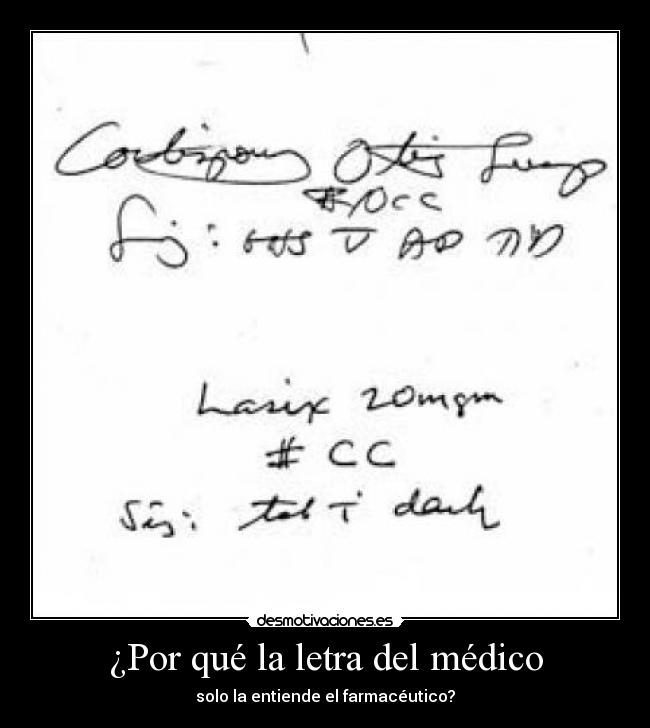 Cortisporin Otic Susp
#10cc
Sig: AD
Lasix 20mgm
# CC
Sig: tab i daily
desmotivaciones.es
¿Por qué la letra del médico
solo la entiende el farmacéutico?